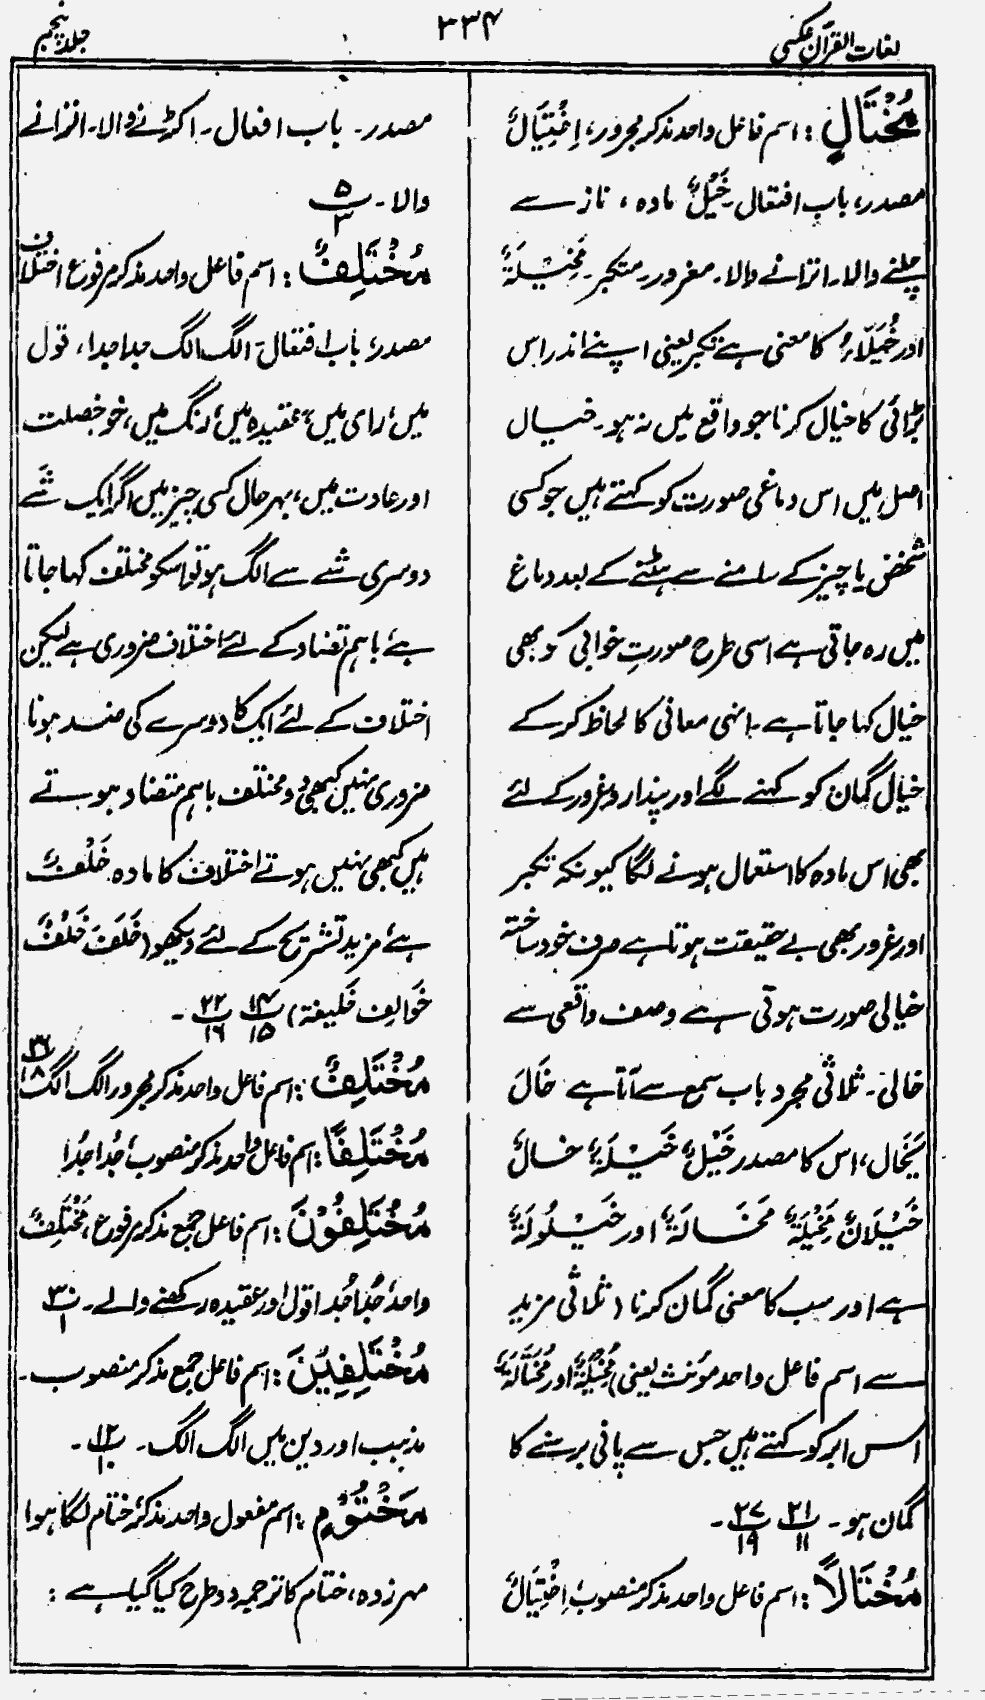 لغات القرآن عکسی
۳۳۴
جلد پنجم
مُخْتَالٍ : اسم فاعل واحد مذکر مجرور، اِخْتِیَالٌ
مصدر، باب افتعال۔ خَیْلٌ مادہ، ناز سے
چلنے والا۔ اترانے والا۔ مغرور۔ متکبر۔ مَخِیْلَۃٌ
اور خُیَلَاءُ کا معنی ہے تکبر یعنی اپنے اندر اس
بڑائی کا خیال کرنا جو واقع میں نہ ہو۔ خیال
اصل میں اس دماغی صورت کو کہتے ہیں جو کسی
شخص یا چیز کے سامنے سے ہٹنے کے بعد دماغ
میں رہ جاتی ہے اسی طرح صورتِ خوابی کو بھی
خیال کہا جاتا ہے۔ انہی معانی کا لحاظ کر کے
خیال گمان کو کہنے لگے اور پندار و غرور کے لئے
بھی اس مادہ کا استعمال ہونے لگا کیونکہ تکبر
اور غرور بھی بے حقیقت ہوتا ہے صرف خود ساختہ
خیالی صورت ہوتی ہے وصف واقعی سے
خالی۔ ثلاثی مجرد باب سمع سے آتا ہے خَالَ
یَخَال، اس کا مصدر خَیْلٌ خَیْلَۃٌ خَالٌ
خَیْلَانٌ مَخِیْلَۃٌ مَخَالَۃٌ اور خَیْلُولَۃٌ
ہے اور سب کا معنی گمان کرنا (ثلاثی مزید
سے اسم فاعل واحد مونث یعنی) مُخِیْلَۃٌ اور مُخْتَالَۃٌ
اس ابر کو کہتے ہیں جس سے پانی برسنے کا
گمان ہو۔ پ۲۱/۱۱ پ۲۷/۱۹۔
مُخْتَالًا : اسم فاعل واحد مذکر منصوب، اِخْتِیَالٌ
مصدر۔ باب افعال۔ اکڑنے والا۔ اترانے
والا۔ پ۵/۳
مُخْتَلِفٌ : اسم فاعل واحد مذکر مرفوع اختلاف
مصدر، باب افتعال۔ الگ الگ جدا جدا، قول
میں، رای میں، عقیدہ میں، رنگ میں، خو خصلت
اور عادت میں، بہرحال کسی چیز میں اگر ایک شَے
دوسری شے سے الگ ہو تو اسکو مختلف کہا جاتا
ہے، باہم تضاد کے لئے اختلاف ضروری ہے لیکن
اختلاف کے لئے ایک کا دوسرے کی ضد ہونا
ضروری نہیں کبھی دو مختلف باہم متضاد ہوتے
ہیں کبھی نہیں ہوتے اختلاف کا مادہ خَلْفٌ
ہے، مزید تشریح کے لئے دیکھو (خَلَفَ خَلْفٌ
خَوَالِف خَلِیفۃ) پ۱۴/۱۵ پ۲۲/۱۶۔
مُخْتَلِفٌ : اسم فاعل واحد مذکر مجرور الگ الگ پ۲۶/۱۸
مُخْتَلِفًا : اسم فاعل واحد مذکر منصوب، جُدا جُدا
مُخْتَلِفُوْنَ : اسم فاعل جمع مذکر مرفوع، مُخْتَلِفٌ
واحد، جُدا جُدا قول اور عقیدہ رکھنے والے۔ پ۳۰/۱
مُخْتَلِفِیْنَ : اسم فاعل جمع مذکر منصوب۔
مذہب اور دین میں الگ الگ۔ پ۱۲/۱۰۔
مَخْتُوْمٍ : اسم مفعول واحد مذکر، ختام لگا ہوا
مہر زدہ، ختام کا ترجمہ دو طرح کیا گیا ہے :